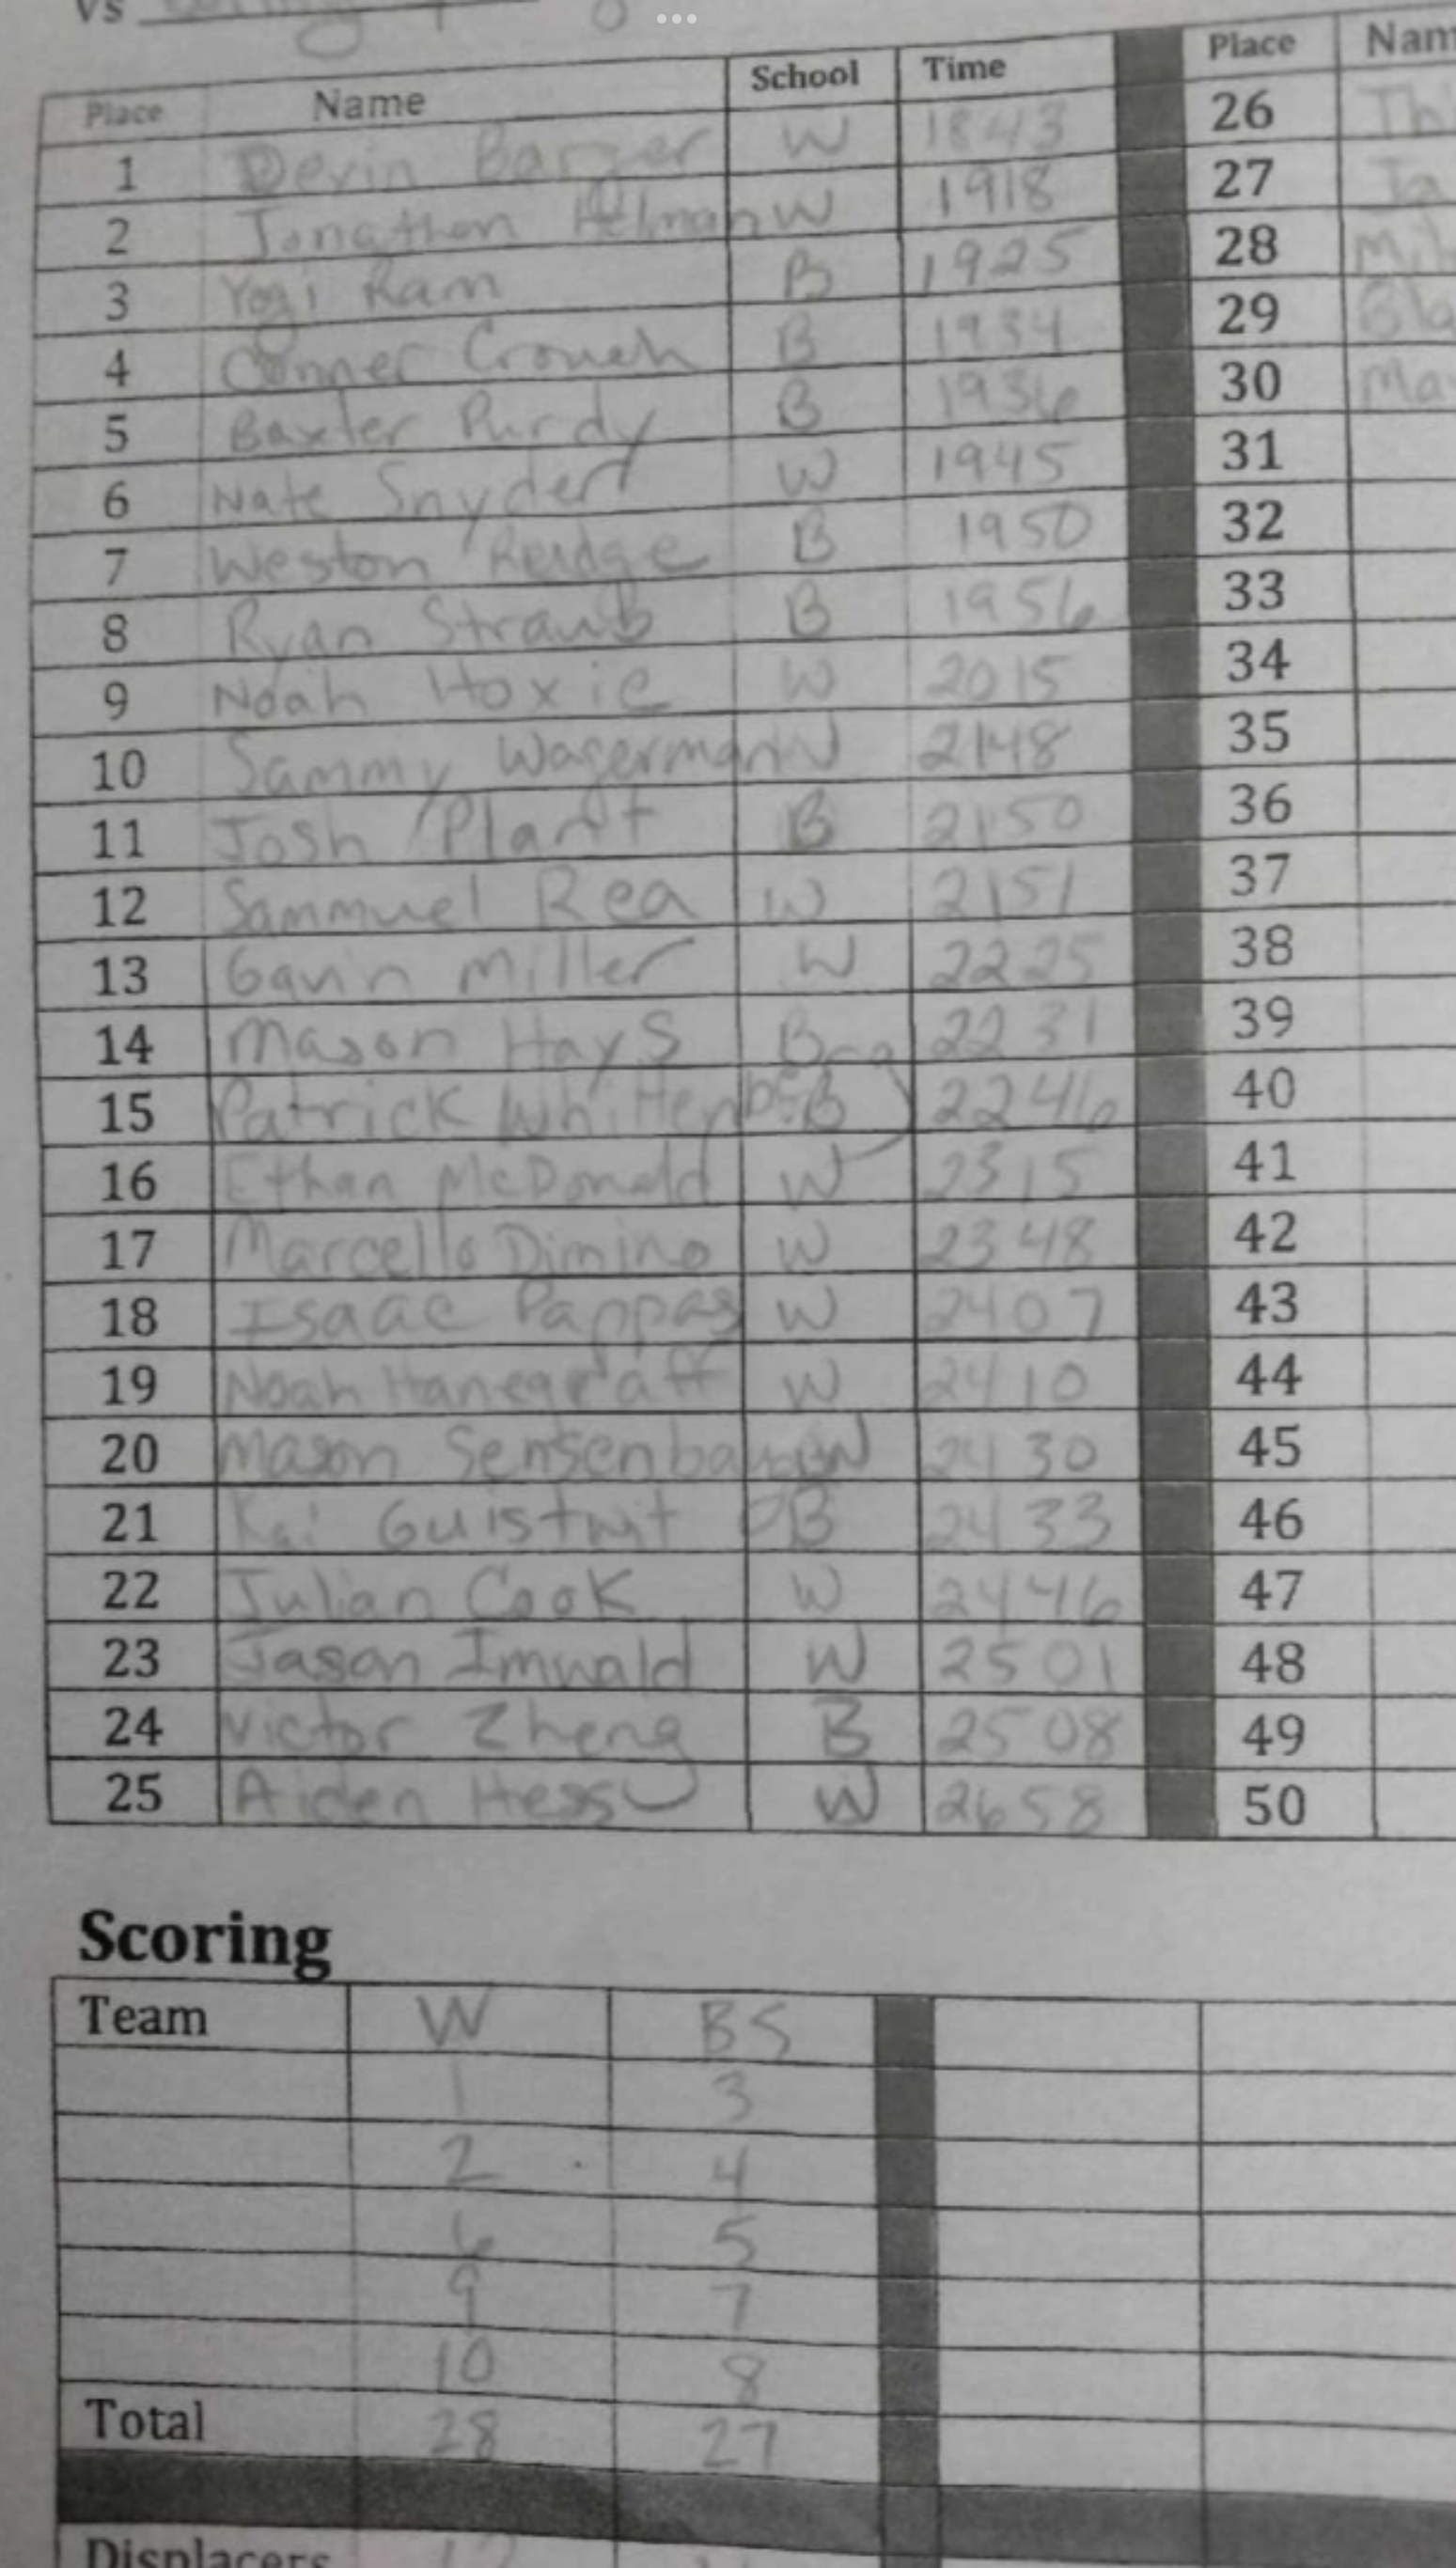 vs
Place Name School Time Place Nam
1 Devin Barger W 1843 26 Th
2 Jonathan Alman W 1918 27 Ja
3 Yogi Ram B 1925 28 Mil
4 Conner Crouch B 1934 29 Bla
5 Baxter Purdy B 1936 30 Mav
6 Nate Snyder W 1945 31
7 Weston B 1950 32
8 Ryan Straub B 1956 33
9 Noah Hoxie W 2015 34
10 Sammy Wagerman W 2148 35
11 Josh Plantt B 2150 36
12 Sammuel Rea W 2151 37
13 Gavin Miller W 2225 38
14 Mason Hays 2231 39
15 Patrick B 2246 40
16 Ethan McDonald W 2315 41
17 Marcello Dimino W 2348 42
18 Isaac Pappas W 2407 43
19 Noah Hanegraaff W 2410 44
20 Mason W 2430 45
21 Kai B 2433 46
22 Julian Cook W 2446 47
23 Jason Imwald W 2501 48
24 Victor Zheng B 2508 49
25 Aiden Hess W 2658 50
Scoring
Team W BS
1 3
2 4
6 5
9 7
10 8
Total 28 27
Displacers